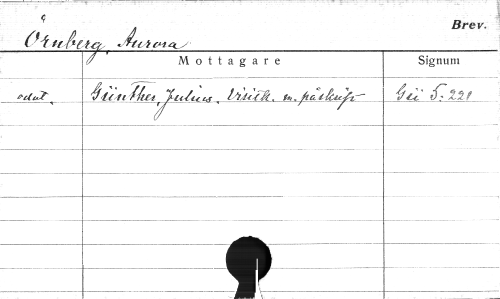 Brev.
Örnberg, Aurora
Mottagare Signum
odat. Günther, Julius. Visitk. m. påskrift Gü 5: 221